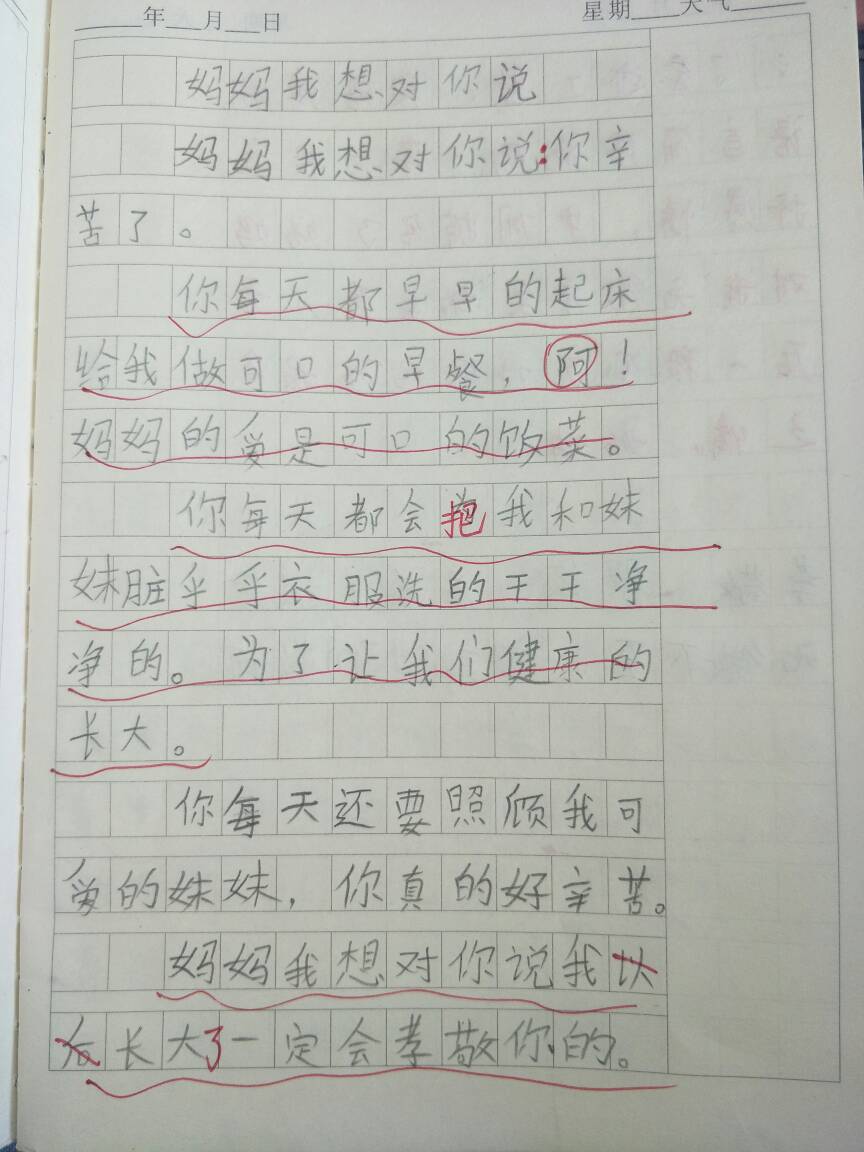 年 月 日 星期 天气
妈妈我想对你说
妈妈我想对你说:你辛
苦了。
你每天都早早的起床
给我做可口的早餐,阿!
妈妈的爱是可口的饭菜。
你每天都会抱我和妹
妹脏乎乎衣服洗的干干净
净的。为了让我们健康的
长大。
你每天还要照顾我可
爱的妹妹,你真的好辛苦。
妈妈我想对你说我以
后长大了一定会孝敬你的。